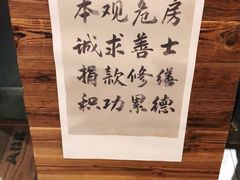 本观危房
诚求善士
捐款修缮
积功累德